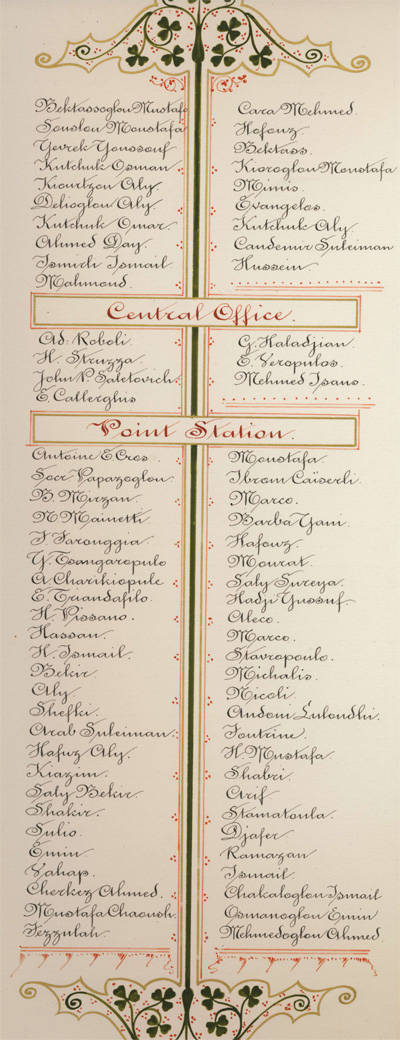 Bektassoglou Mustafa
Souslou Moustafa
Yovrek Youssouf
Kutchuk Osman
Kiourtzou Aly
Delioglou Aly
Kutchuk Omar
Ahmed Day
Ismirli Ismail
Mahmoud.
Cara Mehmed.
Hafouz
Bektass.
Kioroglou Moustafa
Mimis.
Evangelos.
Kutchuk Aly.
Candemir Suleiman
Hussein
Central Office.
Ad: Roboli.
H. Struzza.
John P. Saletovich.
E. Callerghis
G. Haladjian.
E. Veropulos.
Mehmed Isaus.
Point Station.
Antoine E. Cros.
Socr Papazoglou.
B. Mirzan.
N. Mainetti.
F. Farouggia.
Y. Tsangaropulo
A. Charikiopule
E. Triandafilo.
H. Vissano.
Hassan.
H. Ismail.
Bekir.
Aly.
Shefki.
Arab Suleiman.
Hafuz Aly.
Kiazim.
Saly Bekir.
Shakir.
Sulio.
Emin
Vahap.
Cherkez Ahmed.
Mustafa Chaoush.
Fezzulah.
Moustafa.
Ibrom Caïserli.
Marco.
Barba Yani.
Hafouz.
Mourat.
Saly Sureya.
Hadji Yussuf
Aleco.
Marco.
Stavropoulo.
Michalis.
Nicoli.
Andoni Luloudhi.
Foutrine.
H. Mustafa.
Shabri.
Arif
Stamatoula.
Djafer.
Ramazan
Ismail.
Chakaloglou Ismail
Osmanoglou Emin
Mehmedoglou Ahmed